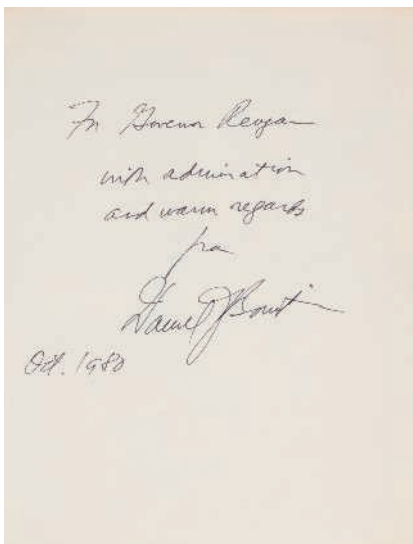 For Governor Reagan
with admiration
and warm regards
from
Daniel J Boorstin
Oct. 1980